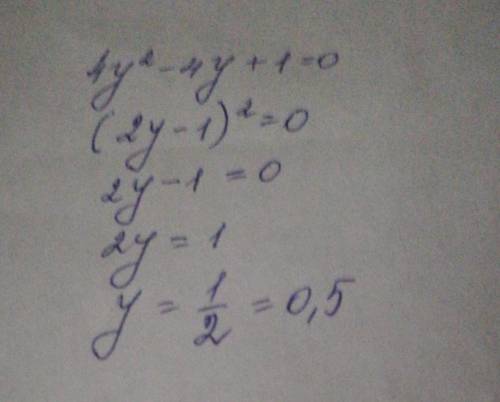 4y² - 4y + 1 = 0
(2y - 1)² = 0
2y - 1 = 0
2y = 1
y = 1/2 = 0,5